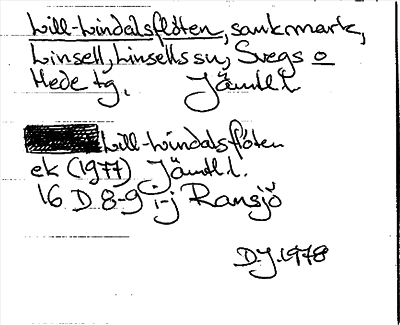 Lill-Lindalsflöten, sankmark,
Linsell, Linsells sn, Svegs o
Hede tg. Jämtl.l.
Lill-Lindalsflöten
ek (1977) Jämtl.l.
16 D 8-9 i-j Ransjö
D.J. 1978